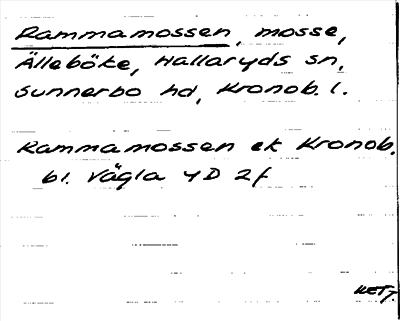 Rammamossen, mosse,
Älleböke, Hallaryds sn,
Sunnerbo hd, Kronob. l.
Rammamossen ek Kronob.
bl. Vägla 4D 2f